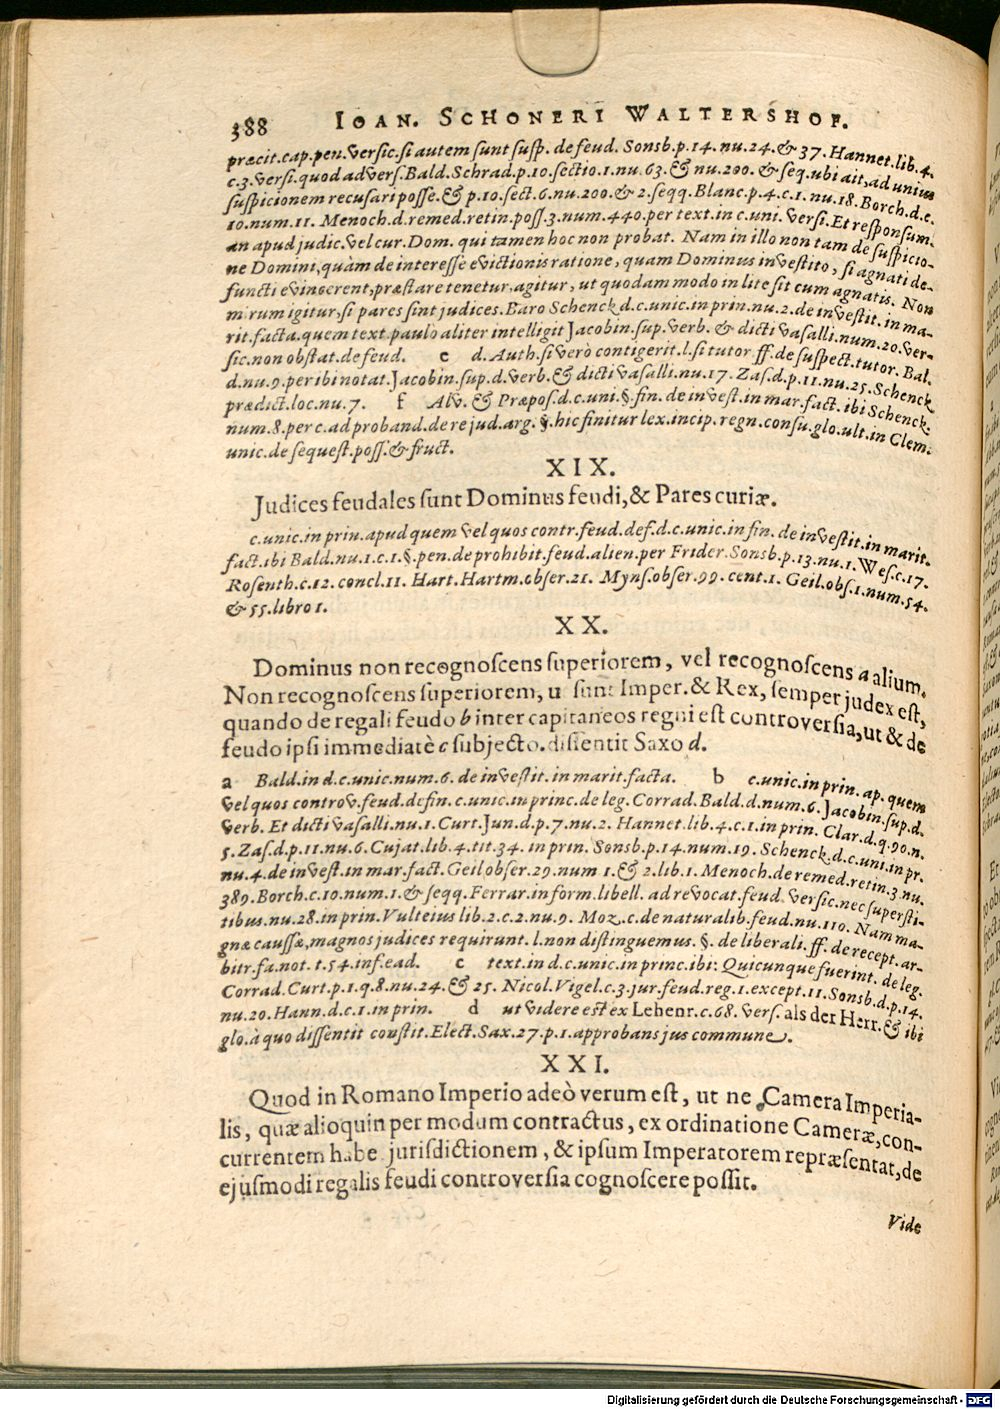 388 IOAN. SCHONERI WALTERSHOF.
præcit.cap.pen.versic.si autem sunt susp. de feud. Sonsb.p.14.nu.24.& 37. Hannet.lib.4.
c.3.versi.quod advers.Bald.Schrad.p.10.sectio.1.nu.63.& nu.200. & seq.ubi ait,ad unius
suspicionem recusari posse.& p.10.sect.6.nu.200.& 2.seqq.Blanc.p.4.c.1.nu.18.Borch.d.c.
10.num.11. Menoch.d.remed.retin.poss.3.num.440.per text.in c.uni. versi.Et responsum.
an apud judic.vel cur.Dom. qui tamen hoc non probat. Nam in illo non tam de suspicio-
ne Domini,quàm de interesse evictionis ratione, quam Dominus investito, si agnati de-
functi evincerent,præstare tenetur,agitur, ut quodam modo in lite sit cum agnatis. Non
mirum igitur,si pares sint judices.Baro Schenck.d.c.unic.in prin.nu.2.de investit.in ma-
rit.facta.quem text.paulo aliter intelligit Jacobin.sup.verb. & dicti vasalli.num.20.ver-
sic.non obstat.de feud. c d.Auth.si verò contigerit.l.si tutor ff.de suspect.tutor. Bal.
d.nu.9.per ibi notat.Jacobin.sup.d.verb.& dicti vasalli.nu.17. Zas.d.p.11.nu.25.Schenck
prædict.loc.nu.7. f Alv. & Præpos.d.c.uni.§.fin.de invest.in mar.fact.ibi Schenck.
num.8.per c.ad proband.de re jud.arg. §.hic finitur lex.incip.regn.consu.glo.ult.in Clem.
unic.de sequest.poss.& fruct.
XIX.
Judices feudales sunt Dominus feudi,& Pares curiæ.
c.unic.in prin.apud quem vel quos contr.feud.def.d.c.unic.in fin. de investit.in marit.
fact.ibi Bald.nu.1.c.1.§.pen.de prohibit.feud.alien.per Frider.Sonsb.p.13.nu.1.Wes.c.17.
Rosenth.c.12.concl.11. Hart.Hartm.obser.21. Myns.obser.99.cent.1. Geil.obs.1.num.54.
& 55.libro 1.
XX.
Dominus non recognoscens superiorem, vel recognoscens a alium.
Non recognoscens superiorem, u sunt Imper.& Rex, semper judex est,
quando de regali feudo b inter capitaneos regni est controversia,ut & de
feudo ipsi immediatè c subjecto.dissentit Saxo d.
a Bald.in d.c.unic.num.6.de investit.in marit.facta. b c.unic.in prin.ap.quem
vel quos controv.feud.defin.c.unic.in princ.de leg.Corrad.Bald.d.num.6.Jacobin.sup.d.
verb. Et dicti vasalli.nu.1.Curt.Jun.d.p.7.nu.2. Hannet.lib.4.c.1.in prin. Clar.d.q.90.n.
5.Zas.d.p.11.nu.6.Cujat.lib.4.tit.34. in prin. Sonsb.p.14.num.19. Schenck.d.c.uni.in pr.
nu.4.de invest.in mar.fact.Geil obser.29.num 1.& 2.lib.1. Menoch.de remed.retin.3.nu.
389.Borch.c.10.num.1.& seqq.Ferrar.in form.libell. ad revocat.feud.versic.nec supersti-
tibus.nu.28.in prin.Vulteius lib.2.c.2.nu.9. Moz.c.de naturalib.feud.nu.110. Nam ma-
gnæ caussæ,magnos judices requirunt. l.non distinguemus. §. de liberali.ff.de recept.ar-
bitr.fa.not.t.54.inf.ead. c text.in d.c.unic.in princ.ibi: Quicunque fuerint. de leg.
Corrad.Curt.p.1.q.8.nu.24.& 25. Nicol.Vigel.c.3.jur.feud.reg.1.except.11.Sonsb.d.p.14.
nu.20.Hann.d.c.1.in prin. d ut videre est ex Lehenr.c.68. vers. als der Herr.& ibi
glo.à quo dissentit constit.Elect.Sax.27.p.1.approbans jus commune.
XXI.
Quod in Romano Imperio adeò verum est, ut ne Camera Imperia-
lis, quæ alioquin per modum contractus, ex ordinatione Cameræ,con-
currentem habe jurisdictionem, & ipsum Imperatorem repræsentat,de
ejusmodi regalis feudi controversia cognoscere possit.
Vide
Digitalisierung gefördert durch die Deutsche Forschungsgemeinschaft - DFG